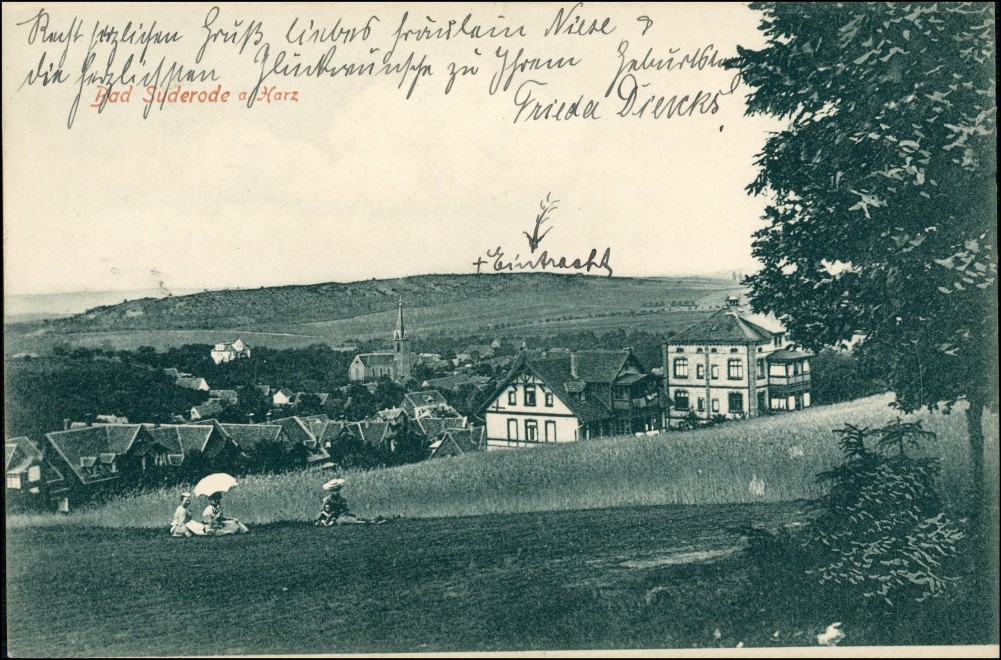 Recht herzlichen Gruß liebes fräulein Niete &
die herzlichsten Glückwünsche zu Ihrem Geburtstag
Frieda Diercks
Bad Suderode a. Harz
+ Eintracht